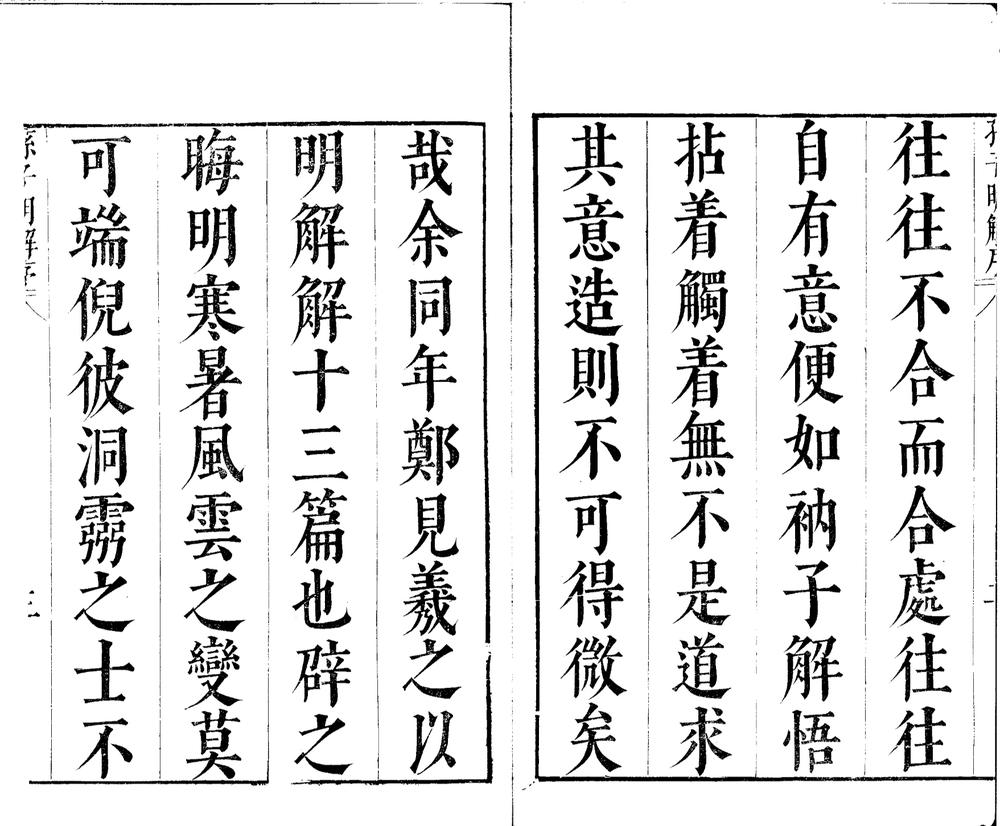 孫子明解序
二
往往不合而合處往往
自有意便如衲子解悟
拈着觸着無不是道求
其意造則不可得微矣
哉余同年鄭見羲之以
明解解十三篇也辟之
晦明寒暑風雲之變莫
可端倪彼洞霛之士不
孫子明解序
三